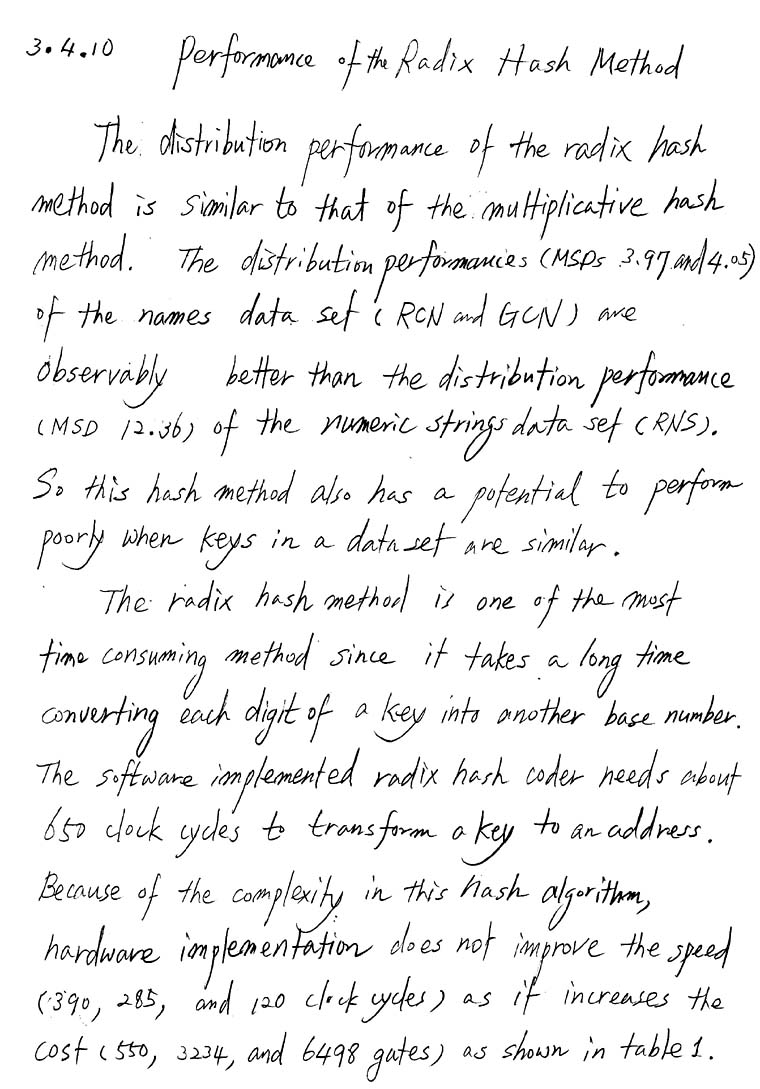 3.4.10 Performance of the Radix Hash Method
The distribution performance of the radix hash
method is similar to that of the multiplicative hash
method. The distribution performances (MSPs 3.97 and 4.05)
of the names data set (RCN and GCN) are
observably better than the distribution performance
(MSD 12.36) of the numeric strings data set (RNS).
So this hash method also has a potential to perform
poorly when keys in a data set are similar.
The radix hash method is one of the most
time consuming method since it takes a long time
converting each digit of a key into another base number.
The software implemented radix hash coder needs about
650 clock cycles to transform a key to an address.
Because of the complexity in this hash algorithm,
hardware implementation does not improve the speed
(390, 285, and 120 clock cycles) as it increases the
cost (550, 3234, and 6498 gates) as shown in table 1.